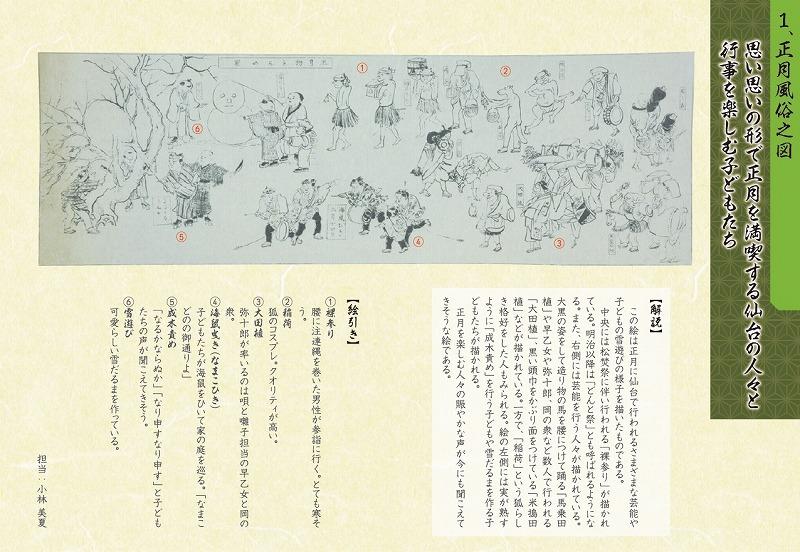 1、正月風俗之図
思い思いの形で正月を満喫する仙台の人々と
行事を楽しむ子どもたち
①
②
③
④
⑤
⑥
【解説】
この絵は正月に仙台で行われるさまざまな芸能や
子どもの雪遊びの様子を描いたものである。
中央には松焚祭に伴い行われる「裸参り」が描かれ
ている。明治以降は「どんと祭」とも呼ばれるようにな
る。また、右側には芸能を行う人々が描かれている。
大黒の姿をして造り物の馬を腰につけて踊る「馬乗田
植」や早乙女や弥十郎、岡の衆など数人で行われる
「大田植」、黒い頭巾をかぶり面をつけている「米搗田
植」などが描かれている。一方で、「稲荷」という狐らし
き格好をした人もみられる。絵の左側には実が熟す
ように「成木責め」を行う子どもや雪だるまを作る子
どもたちが描かれる。
正月を楽しむ人々の賑やかな声が今にも聞こえて
きそうな絵である。
【絵引き】
①裸参り
腰に注連縄を巻いた男性が参詣に行く。とても寒そ
う。
②稲荷
狐のコスプレ。クオリティが高い。
③大田植
弥十郎が率いるのは唄と囃子担当の早乙女と岡の
衆。
④海鼠曳き(なまこひき)
子どもたちが海鼠をひいて家の庭を巡る。「なまこ
どのの御通りよ」
⑤成木責め
「なるかならぬか」「なり申すなり申す」と子ども
たちの声が聞こえてきそう。
⑥雪遊び
可愛らしい雪だるまを作っている。
担当：小林 美夏